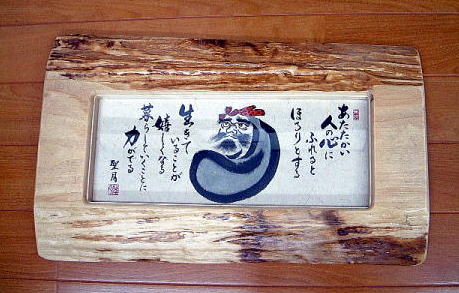 あたたかい
人の心に
ふれると
ほろりとする
生きて
いることが
嬉しくなる
暮らしていくことに
力がでる
聖月